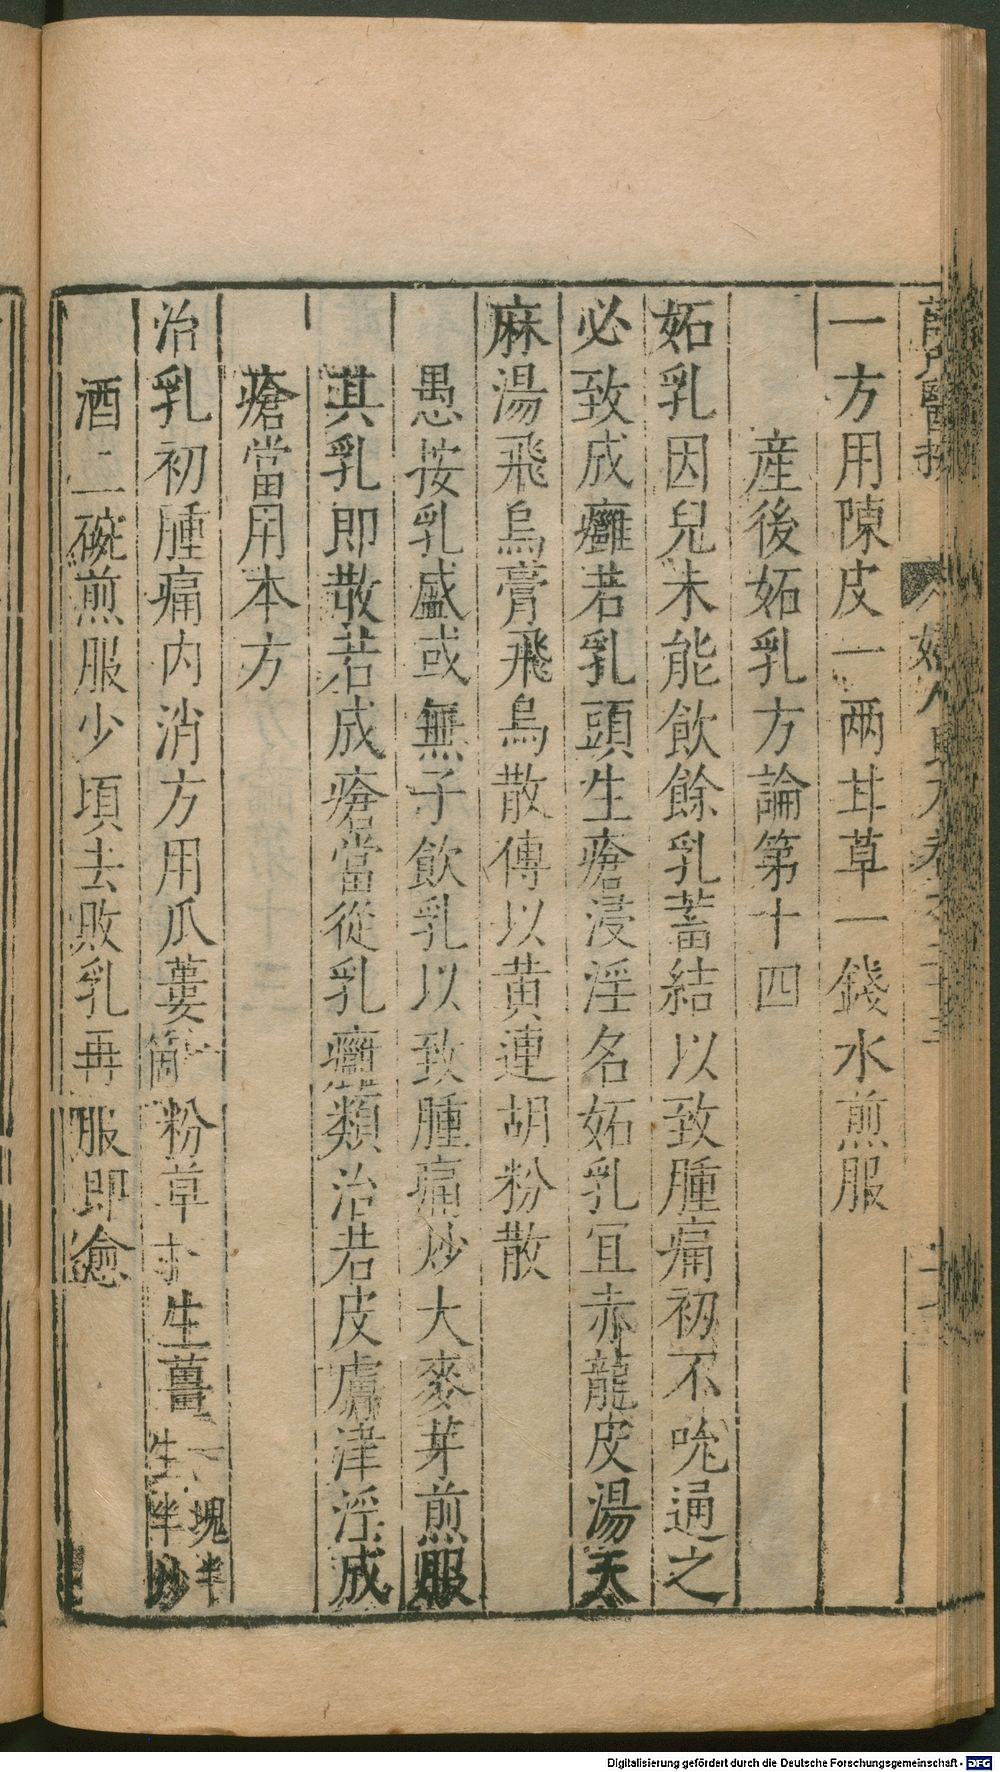 一方用陳皮一两甘草一錢水煎服
産後妬乳方論第十四
妬乳因兒未能飲餘乳蓄結以致腫痛初不吮通之
必致成癰若乳頭生瘡浸淫名妬乳宜赤龍皮湯天
麻湯飛烏膏飛烏散傅以黄連胡粉散
愚按乳盛或無子飲乳以致腫痛炒大麥芽煎服
其乳即散若成瘡當從乳癰類治若皮膚津淫成
瘡當用本方
治乳初腫痛内消方用瓜蔞一箇粉草寸生薑一塊半生半炒
酒二碗煎服少頃去敗乳再服即愈
Digitalisierung gefördert durch die Deutsche Forschungsgemeinschaft - DFG